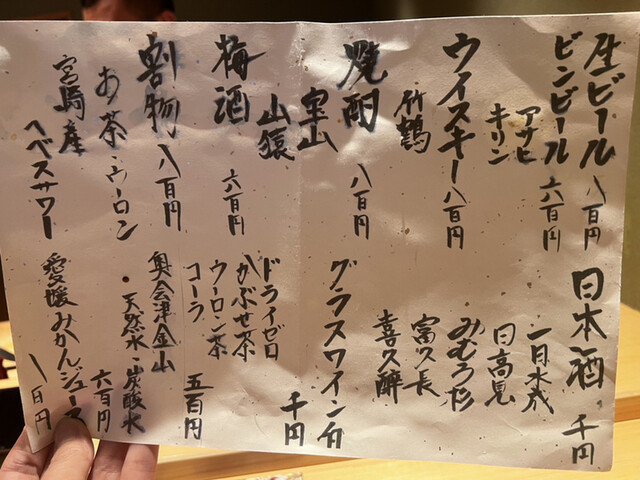 生ビール 八百円
ビンビール 六百円
アサヒ
キリン
ウイスキー 八百円
竹鶴
焼酎 八百円
宝山
山猿
梅酒 六百円
割物 八百円
お茶・ウーロン
宮崎産
ヘベスサワー
日本酒 千円
一白水成
日高見
みむろ杉
富久長
喜久酔
グラスワイン 千円
ドライゼロ
かぶせ茶
ウーロン茶
コーラ 五百円
奥会津金山
・天然水・炭酸水 六百円
愛媛みかんジュース 八百円